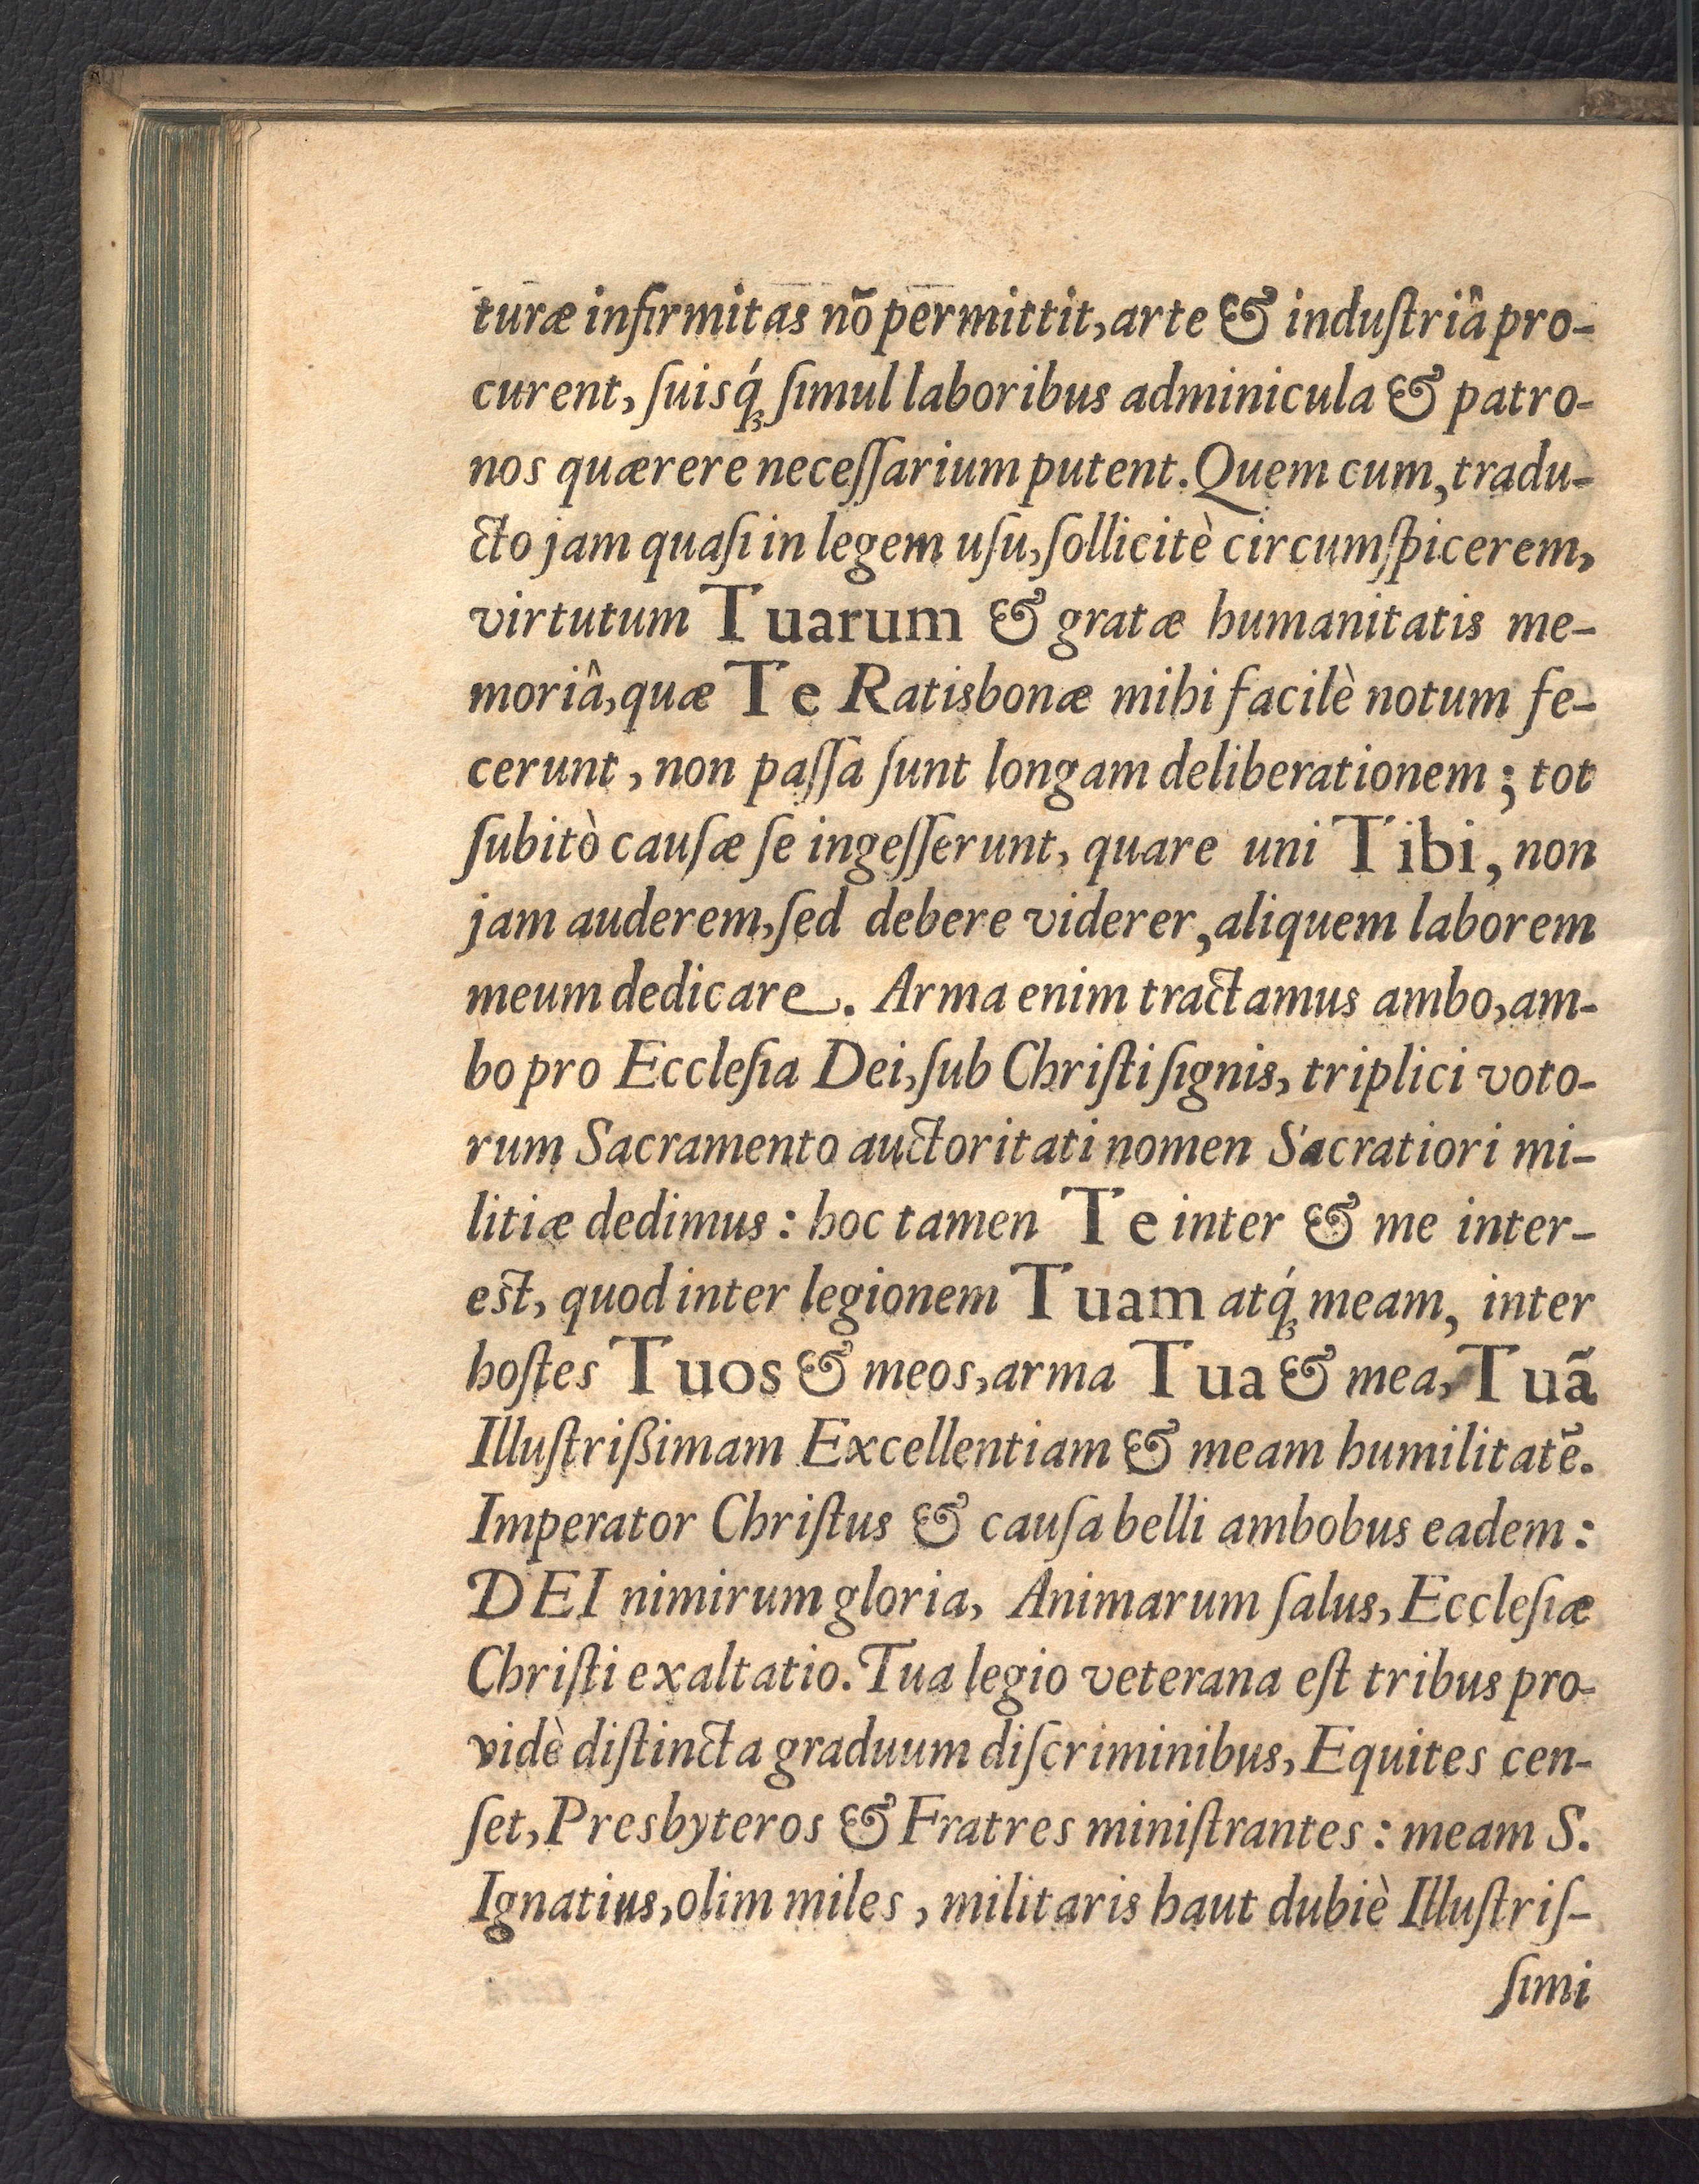 turæ infirmitas nõ permittit, arte & induſtriâ pro-
curent, ſuisq́ꝫ ſimul laboribus adminicula & patro-
nos quærere neceſſarium putent. Quem cum, tradu-
cto jam quaſi in legem uſu, ſollicitè circumſpicerem,
virtutum Tuarum & gratæ humanitatis me-
moriâ, quæ Te Ratisbonæ mihi facilè notum fe-
cerunt, non paſſa ſunt longam deliberationem; tot
ſubitò cauſæ ſe ingeſſerunt, quare uni Tibi, non
jam auderem, ſed debere viderer, aliquem laborem
meum dedicare. Arma enim tractamus ambo, am-
bo pro Eccleſia Dei, ſub Chriſti ſignis, triplici voto-
rum Sacramento auctoritati nomen Sacratiori mi-
litiæ dedimus: hoc tamen Te inter & me inter-
est, quod inter legionem Tuam atq́ꝫ meam, inter
hoſtes Tuos & meos, arma Tua & mea, Tuã
Illuſtrißimam Excellentiam & meam humilitatẽ.
Imperator Chriſtus & cauſa belli ambobus eadem:
DEI nimirum gloria, Animarum ſalus, Eccleſiæ
Chriſti exaltatio. Tua legio veterana eſt tribus pro-
vidè diſtincta graduum diſcriminibus, Equites cen-
ſet, Presbyteros & Fratres miniſtrantes: meam S.
Ignatius, olim miles, militaris haut dubiè Illuſtriſ-
ſimi